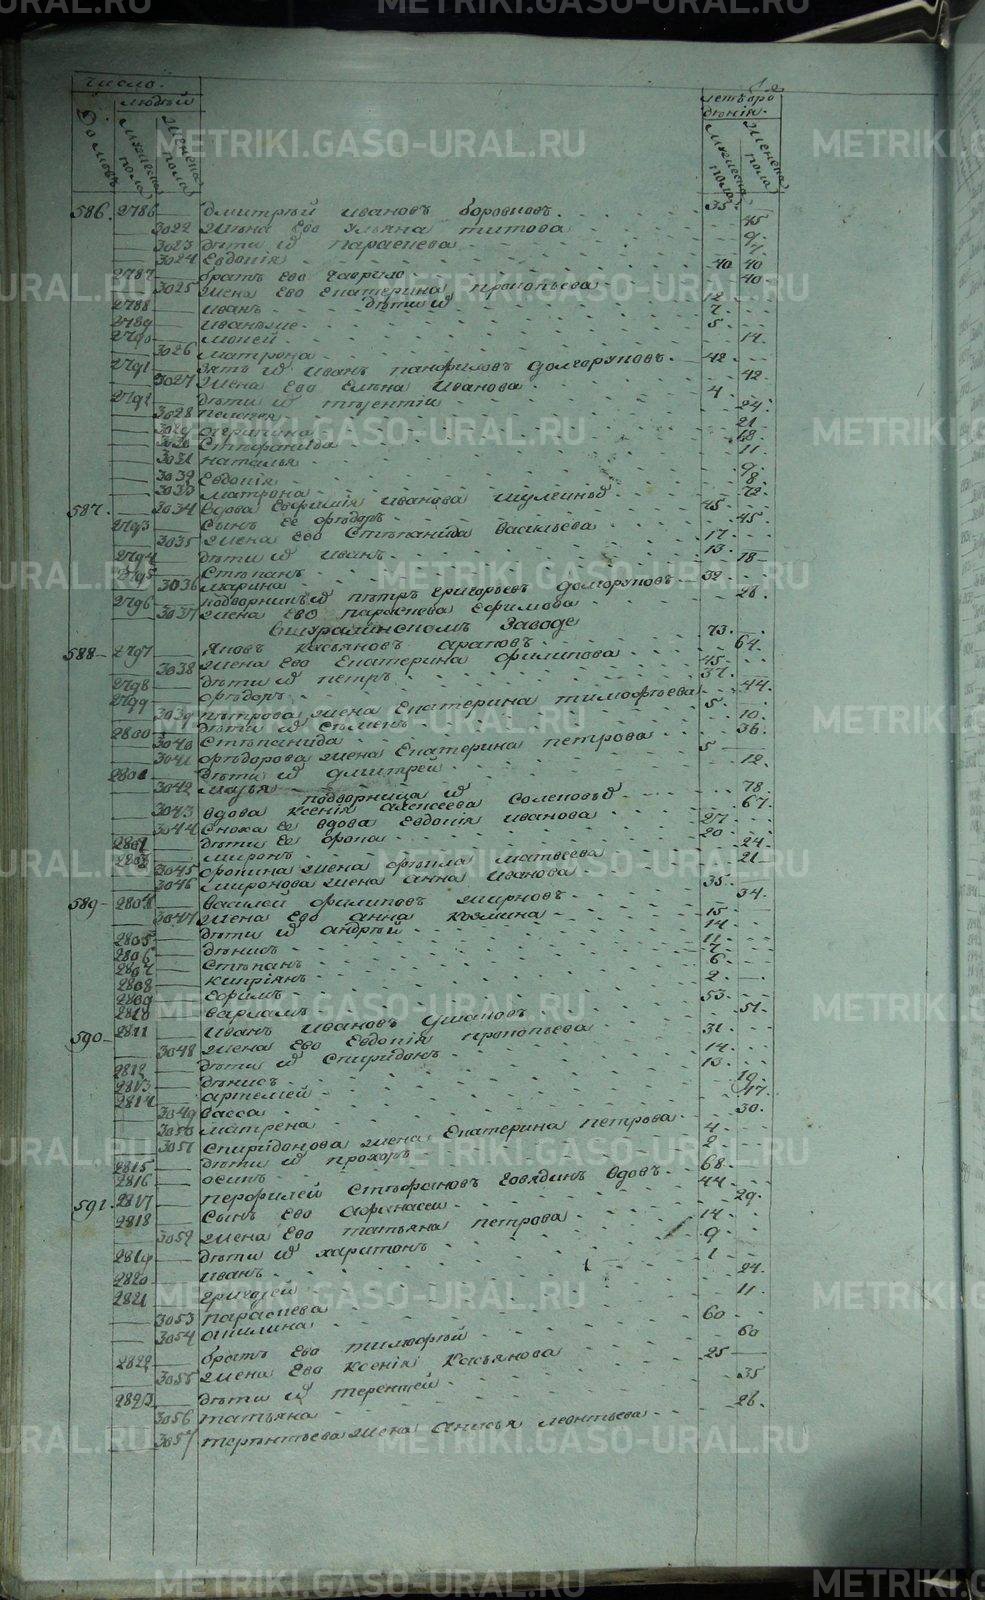 METRIKI.GASO-URAL.RU
число.
людей
Летъ рождѣнія.
Домовъ
мужеска пола
женска пола
мужеска пола
женска пола
586. 2786 Дмитрѣй Ивановъ Боровковъ 35
3022 Жена Ево Ульяна Титова 45
3023 Дѣти их Параскева 9
3024 Евдокія
2787 братъ Ево Гаврило 40
3025 Жена Ево Екатерина Прокопьева 40
2788 Дѣти их Иванъ 12
2789 Иванъ же 7
2790 Мокей 5
3026 Матрона 14
2791 Зять их Иванъ Панфиловъ Долгоруковъ 42
3027 Жена Ево Елѣна Иванова 42
2792 Дѣти их 4
3028 Пелагея 24
3029 21
3030 Стефанида 18
3031 Наталья 11
3032 Евдокія 9
3033 Матрона 8
587. 3034 Вдова Евфимія Иванова 72
2793 Сынъ Ее Фѣдоръ 45
3035 Жена Ево Стѣпанида Васильева 45
2794 Дѣти их Иванъ 17
2795 Стѣпанъ 13
3036 Марина 18
2796 Подворникъ их Пѣтръ Григорьевъ Долгоруковъ 32
3037 Жена Ево Параскева Ефимова 28
Вшуралинскомъ Заводе
588 2797 Яковъ Касьяновъ Араповъ 73
3038 Жена Ево Екатерина Филипова 64
2798 Дѣти их Петръ 45
2799 Фѣдоръ 37
3039 Пѣтрова Жена Екатерина Тимофѣева 44
2800 Дѣти их Сѣменъ 5
3040 Стѣпанида 10
3041 Фѣдорова Жена Екатерина Петрова 36
2801 Дѣти их Дмитрей 5
3042 Марья 12
Подворница их
3043 Вдова Ксенія Алексеева 78
3044 Сноха Ее вдова Евдокія Иванова 67
2802 Дѣти Ее Фока 27
2803 Миронъ 20
3045 Фокина Жена Фѣкла Матвеева 24
3046 Миронова Жена Анна Иванова 21
589 2804 Василей Филиповъ Жирновъ 35
3047 Жена Ево Анна Козмина 34
2805 Дѣти их Андрѣй 15
2806 Дѣнисъ 14
2807 Стѣпанъ 11
2808 Кипріянъ 7
2809 Ефимъ 6
2810 Варламъ 2
590 2811 Иванъ Ивановъ Ушаковъ 53
3048 Жена Ево Евдокія Прокопьева 51
2812 Дѣти их Спиридонъ 31
2813 Дѣнисъ 14
2814 Артемей 13
3049 Васса 19
3050 Матрена 17
3051 Спиридонова Жена Екатерина Петрова 30
2815 Дѣти их Прохоръ 4
2816 Осипъ 2
591. 2817 Перфилей Стѣфановъ Говядинъ Вдовъ 68
2818 Сынъ Ево Афанасей 44
3052 Жена Ево Татьяна Петрова 29
2819 Дѣти их Харитонъ 14
2820 Иванъ 9
2821 Григорей 1
3053 Параскева 24
3054 Акилина 11
2822 братъ Ево Тимофѣй 60
3055 Жена Ево Ксенія Касьянова 60
2823 Дѣти их Терентей 25
3056 Татьяна 35
3057 Терѣнтьева Жена Анисья Леонтьева 26